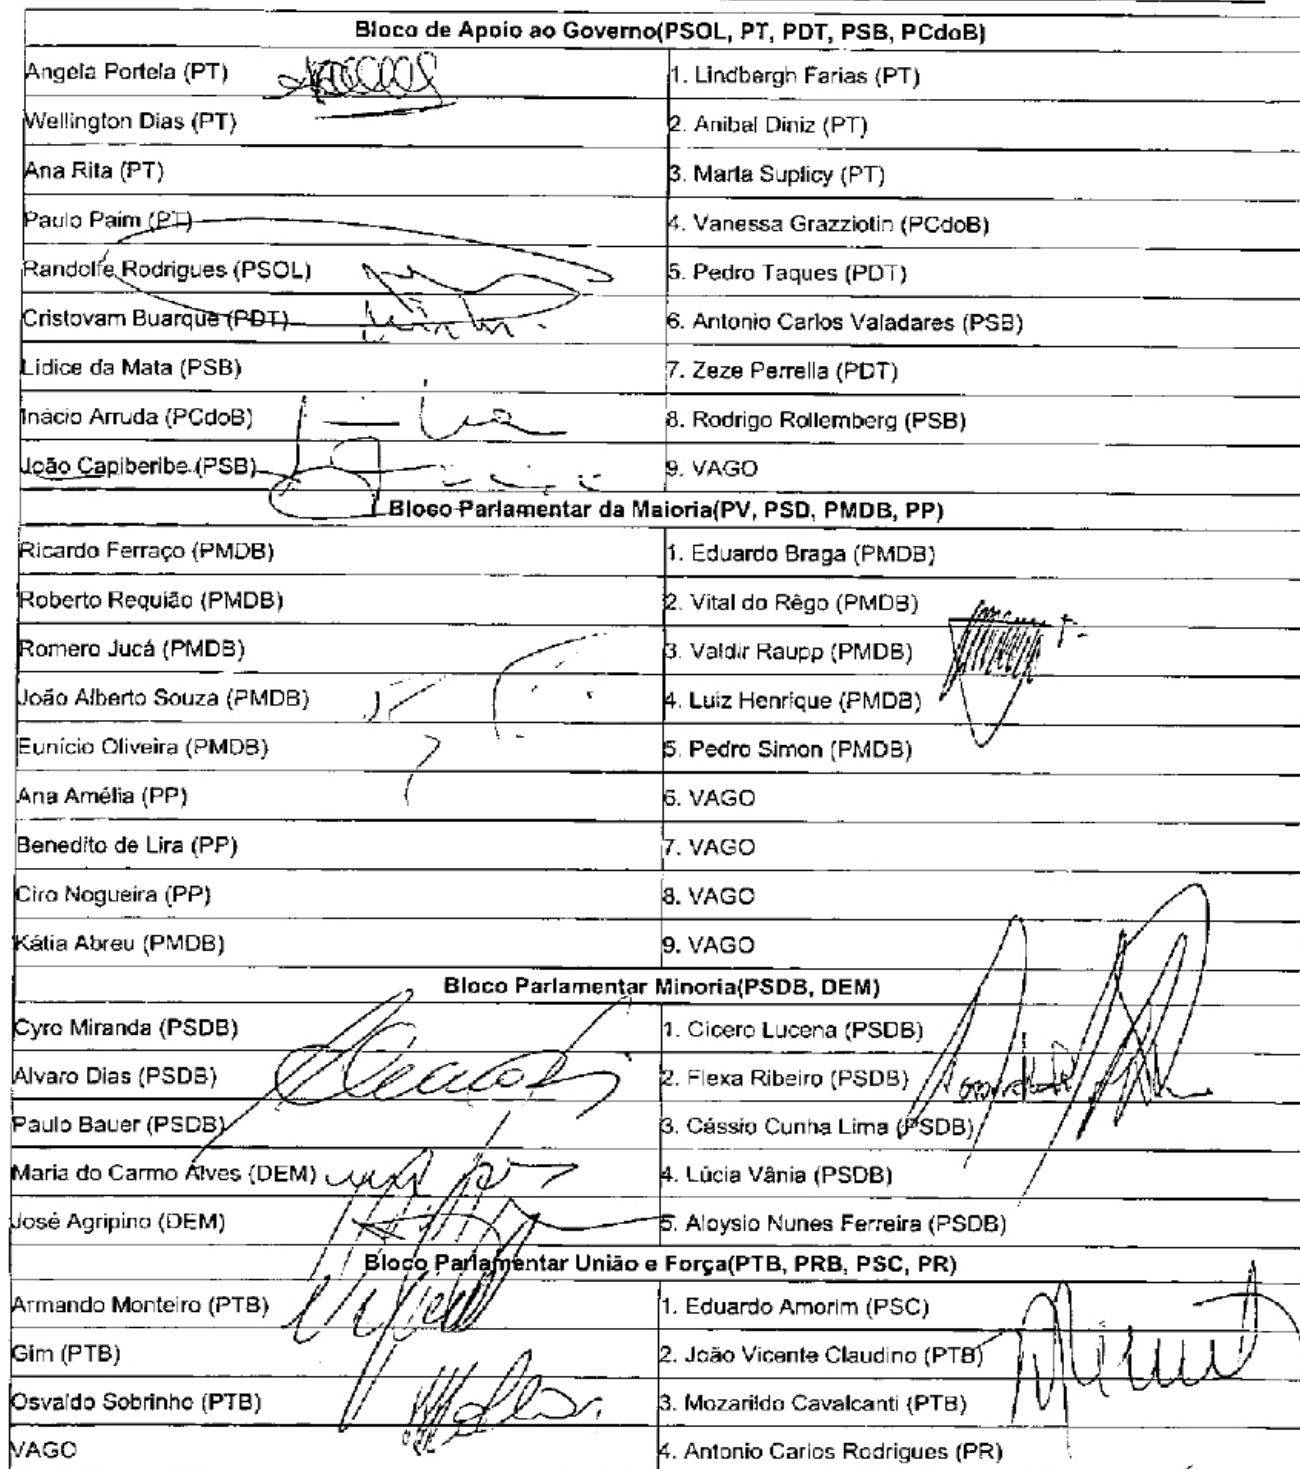 Bloco de Apoio ao Governo(PSOL, PT, PDT, PSB, PCdoB)
Angela Portela (PT) 1. Lindbergh Farias (PT)
Wellington Dias (PT) 2. Anibal Diniz (PT)
Ana Rita (PT) 3. Marta Suplicy (PT)
Paulo Paim (PT) 4. Vanessa Grazziotin (PCdoB)
Randolfe Rodrigues (PSOL) 5. Pedro Taques (PDT)
Cristovam Buarque (PDT) 6. Antonio Carlos Valadares (PSB)
Lídice da Mata (PSB) 7. Zeze Perrella (PDT)
Inácio Arruda (PCdoB) 8. Rodrigo Rollemberg (PSB)
João Capiberibe (PSB) 9. VAGO
Bloco Parlamentar da Maioria(PV, PSD, PMDB, PP)
Ricardo Ferraço (PMDB) 1. Eduardo Braga (PMDB)
Roberto Requião (PMDB) 2. Vital do Rêgo (PMDB)
Romero Jucá (PMDB) 3. Valdir Raupp (PMDB)
João Alberto Souza (PMDB) 4. Luiz Henrique (PMDB)
Eunício Oliveira (PMDB) 5. Pedro Simon (PMDB)
Ana Amélia (PP) 6. VAGO
Benedito de Lira (PP) 7. VAGO
Ciro Nogueira (PP) 8. VAGO
Kátia Abreu (PMDB) 9. VAGO
Bloco Parlamentar Minoria(PSDB, DEM)
Cyro Miranda (PSDB) 1. Cícero Lucena (PSDB)
Alvaro Dias (PSDB) 2. Flexa Ribeiro (PSDB)
Paulo Bauer (PSDB) 3. Cássio Cunha Lima (PSDB)
Maria do Carmo Alves (DEM) 4. Lúcia Vânia (PSDB)
José Agripino (DEM) 5. Aloysio Nunes Ferreira (PSDB)
Bloco Parlamentar União e Força(PTB, PRB, PSC, PR)
Armando Monteiro (PTB) 1. Eduardo Amorim (PSC)
Gim (PTB) 2. João Vicente Claudino (PTB)
Osvaldo Sobrinho (PTB) 3. Mozarildo Cavalcanti (PTB)
VAGO 4. Antonio Carlos Rodrigues (PR)